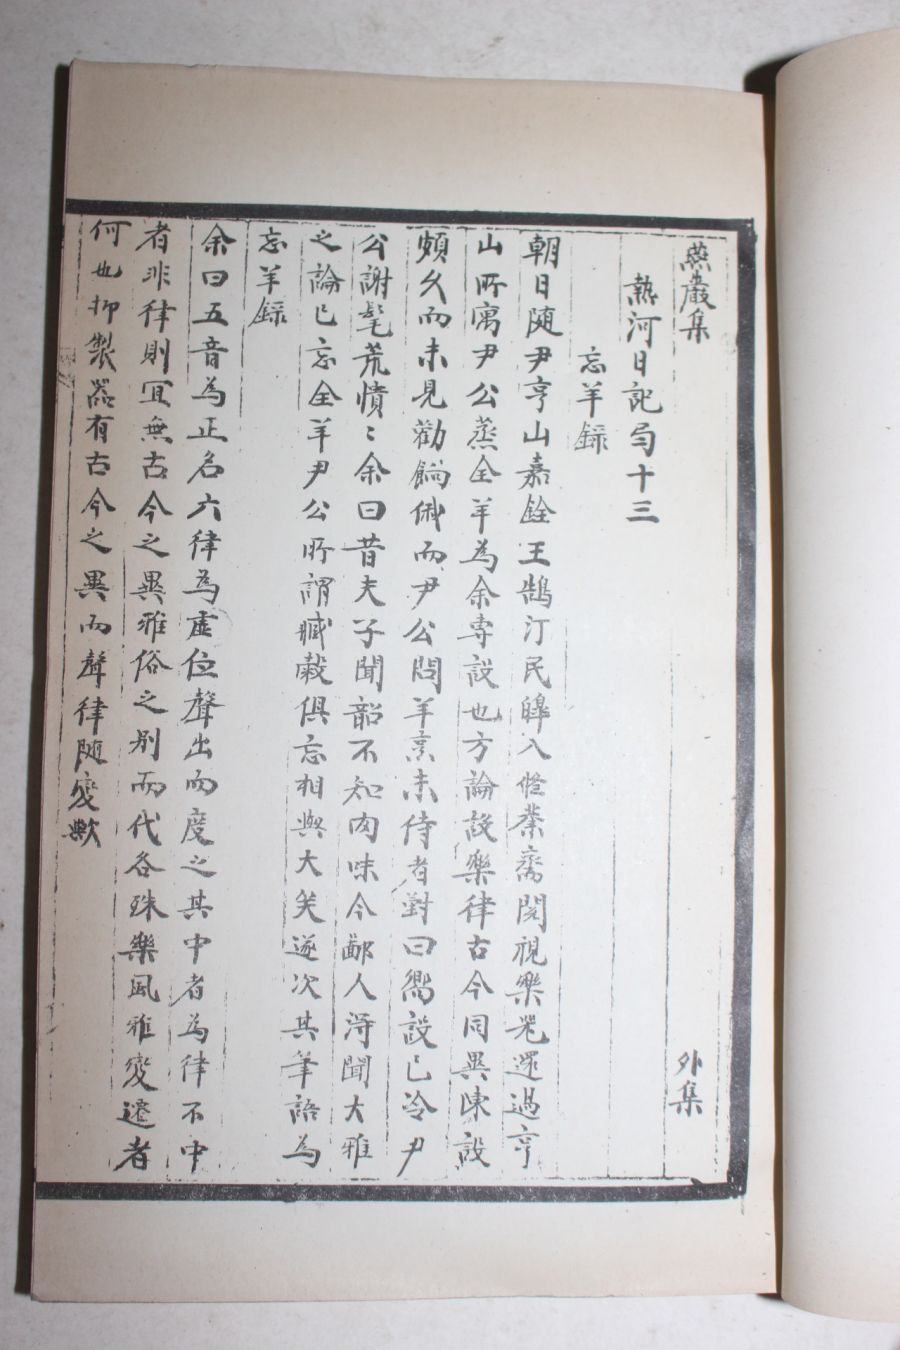 燕巖集 外集
熱河日記局十三
忘羊録
朝日随尹亨山嘉銓王鵠汀民皥入脩業齋閱視樂器還過亨
山所寓尹公蒸全羊為余専設也方論說樂律古今同異陳設
頗久而未見勸餉俄而尹公問羊烹未侍者對曰嚮設已冷尹
公謝髦荒憒〻余曰昔夫子聞韶不知肉味今鄙人淂聞大雅
之論已忘全羊尹公所謂臧糓俱忘相與大笑遂次其筆語為
忘羊録
余曰五音為正名六律為虛位聲出而度之其中者為律不中
者非律則冝無古今之異雅俗之别而代各殊樂風雅變遷者
何也抑製器有古今之異而聲律随變歟